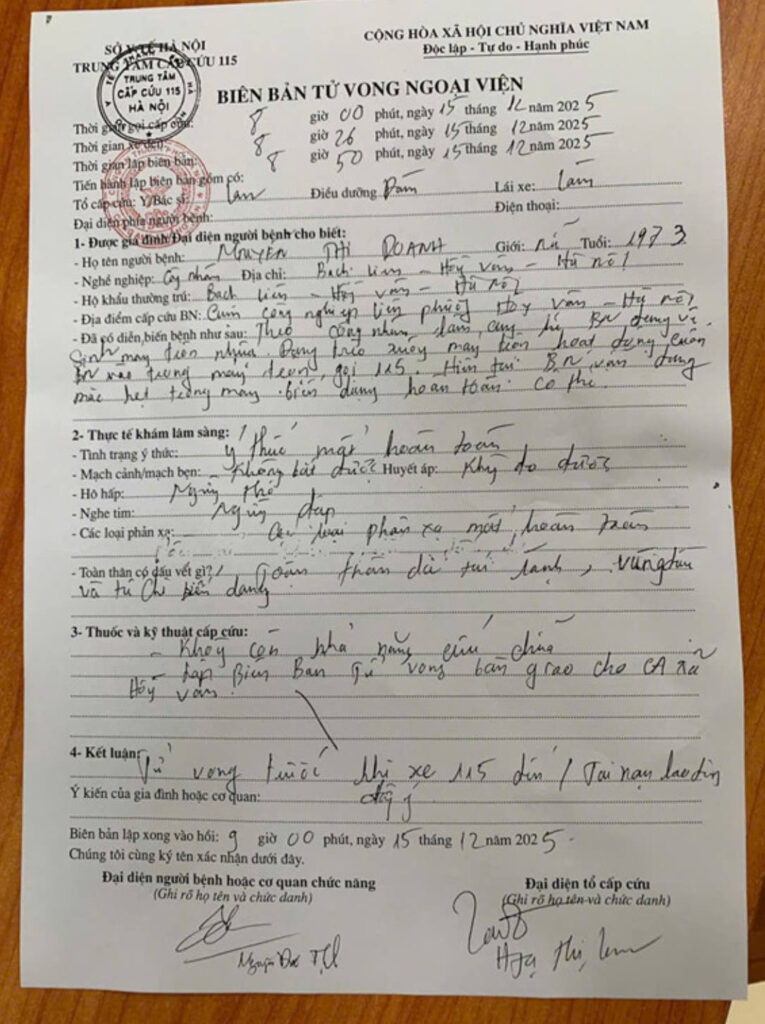 SỞ Y TẾ HÀ NỘI
TRUNG TÂM CẤP CỨU 115
CỘNG HÒA XÃ HỘI CHỦ NGHĨA VIỆT NAM
Độc lập - Tự do - Hạnh phúc
TRUNG TÂM
CẤP CỨU 115
HÀ NỘI
BIÊN BẢN TỬ VONG NGOẠI VIỆN
Thời gian gọi cấp cứu: 8 giờ 00 phút, ngày 15 tháng 12 năm 2025
Thời gian xe đến: 8 giờ 26 phút, ngày 15 tháng 12 năm 2025
Thời gian lập biên bản: 8 giờ 50 phút, ngày 15 tháng 12 năm 2025
Tiến hành lập biên bản gồm có:
Tổ cấp cứu: Y/Bác sĩ: Điều dưỡng Lái xe:
Đại diện phía người bệnh: Điện thoại:
1- Được gia đình/Đại diện người bệnh cho biết:
- Họ tên người bệnh: NGUYEN THI DOANH Giới: nữ Tuổi: 1973
- Nghề nghiệp: Công nhân Địa chỉ: Bạch liên - Hồng vân - Hà nội
- Hộ khẩu thường trú: Bạch liên - Hồng vân - Hà nội
- Địa điểm cấp cứu BN: Cụm công nghiệp liên phương Hồng vân - Hà nội
- Đã có diễn biến bệnh như sau: Theo công nhân làm cùng thì BN đang vệ
sinh máy nhựa. Đang máy hoạt động cuốn
BN vào trong máy gọi 115. Hiện tại BN vẫn đang
mắc kẹt trong máy biến dạng hoàn toàn cơ thể.
2- Thực tế khám lâm sàng:
- Tình trạng ý thức: Ý thức mất hoàn toàn
- Mạch cảnh/mạch bẹn: Không bắt được Huyết áp: Không đo được
- Hô hấp: Ngừng thở
- Nghe tim: Ngừng đập
- Các loại phản xạ: Các loại phản xạ mất hoàn toàn
- Toàn thân có dấu vết gì?: Toàn thân da tái lạnh, vùng đầu
và tứ chi biến dạng
3- Thuốc và kỹ thuật cấp cứu:
- Không còn khả năng cứu chữa
- Lập Biên Bản Tử vong bàn giao cho CA xã
Hồng vân.
4- Kết luận: Tử vong trước khi xe 115 đến / Tai nạn lao động
Ý kiến của gia đình hoặc cơ quan: đồng ý
Biên bản lập xong vào hồi: 9 giờ 00 phút, ngày 15 tháng 12 năm 2025
Chúng tôi cùng ký tên xác nhận dưới đây.
Đại diện người bệnh hoặc cơ quan chức năng
(Ghi rõ họ tên và chức danh)
Đại diện tổ cấp cứu
(Ghi rõ họ tên và chức danh)